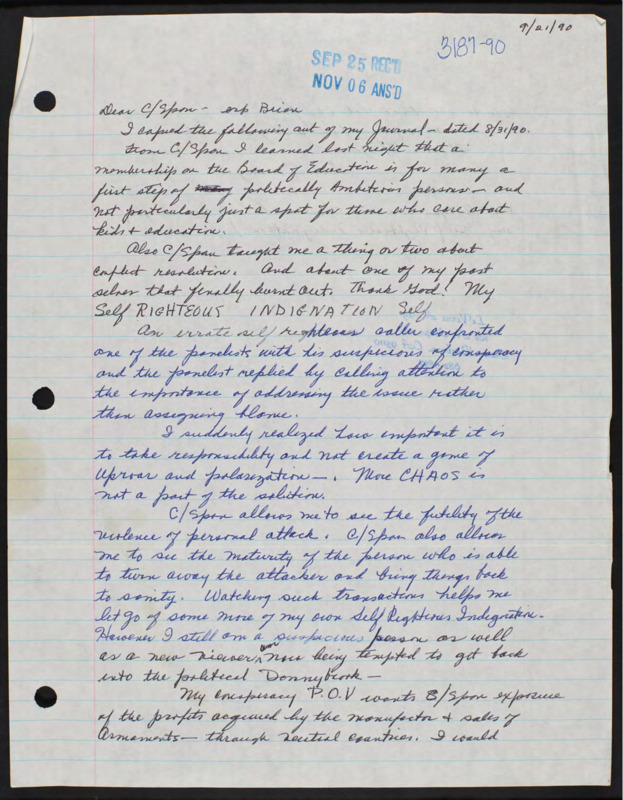 9/21/90
3187-90
SEP 25 REC'D
NOV 06 ANS'D
Dear C/Span - esp Brian
I copied the following out of my Journal - dated 8/31/90.
From C/Span I learned last night that a
membership on the Board of Education is for many a
first step of politically Ambitious persons - and
not particularly just a spot for those who care about
kids & education.
Also C/Span taught me a thing or two about
conflict resolution. And about one of my past
selves that finally burnt out. Thank God! My
Self RIGHTEOUS INDIGNATION Self
An errate self righteous caller confronted
one of the panelists with his suspicions of conspiracy
and the panelist replied by calling attention to
the importance of addressing the issue rather
than assigning blame.
I suddenly realized how important it is
to take responsibility and not create a game of
Uproar and polarization -. More CHAOS is
not a part of the solution.
C/Span allows me to see the futility of the
violence of personal attack. C/Span also allows
me to see the maturity of the person who is able
to turn away the attacker and bring things back
to sanity. Watching such transactions helps me
let go of some more of my own Self Righteous Indignation.
However I still am a suspicious person as well
as a new viewer am now being tempted to get back
into the political Donnybrook -
My conspiracy P.O.V wants C/Span exposure
of the profits acquired by the manufactor & sales of
Armaments - through neutral countries. I would